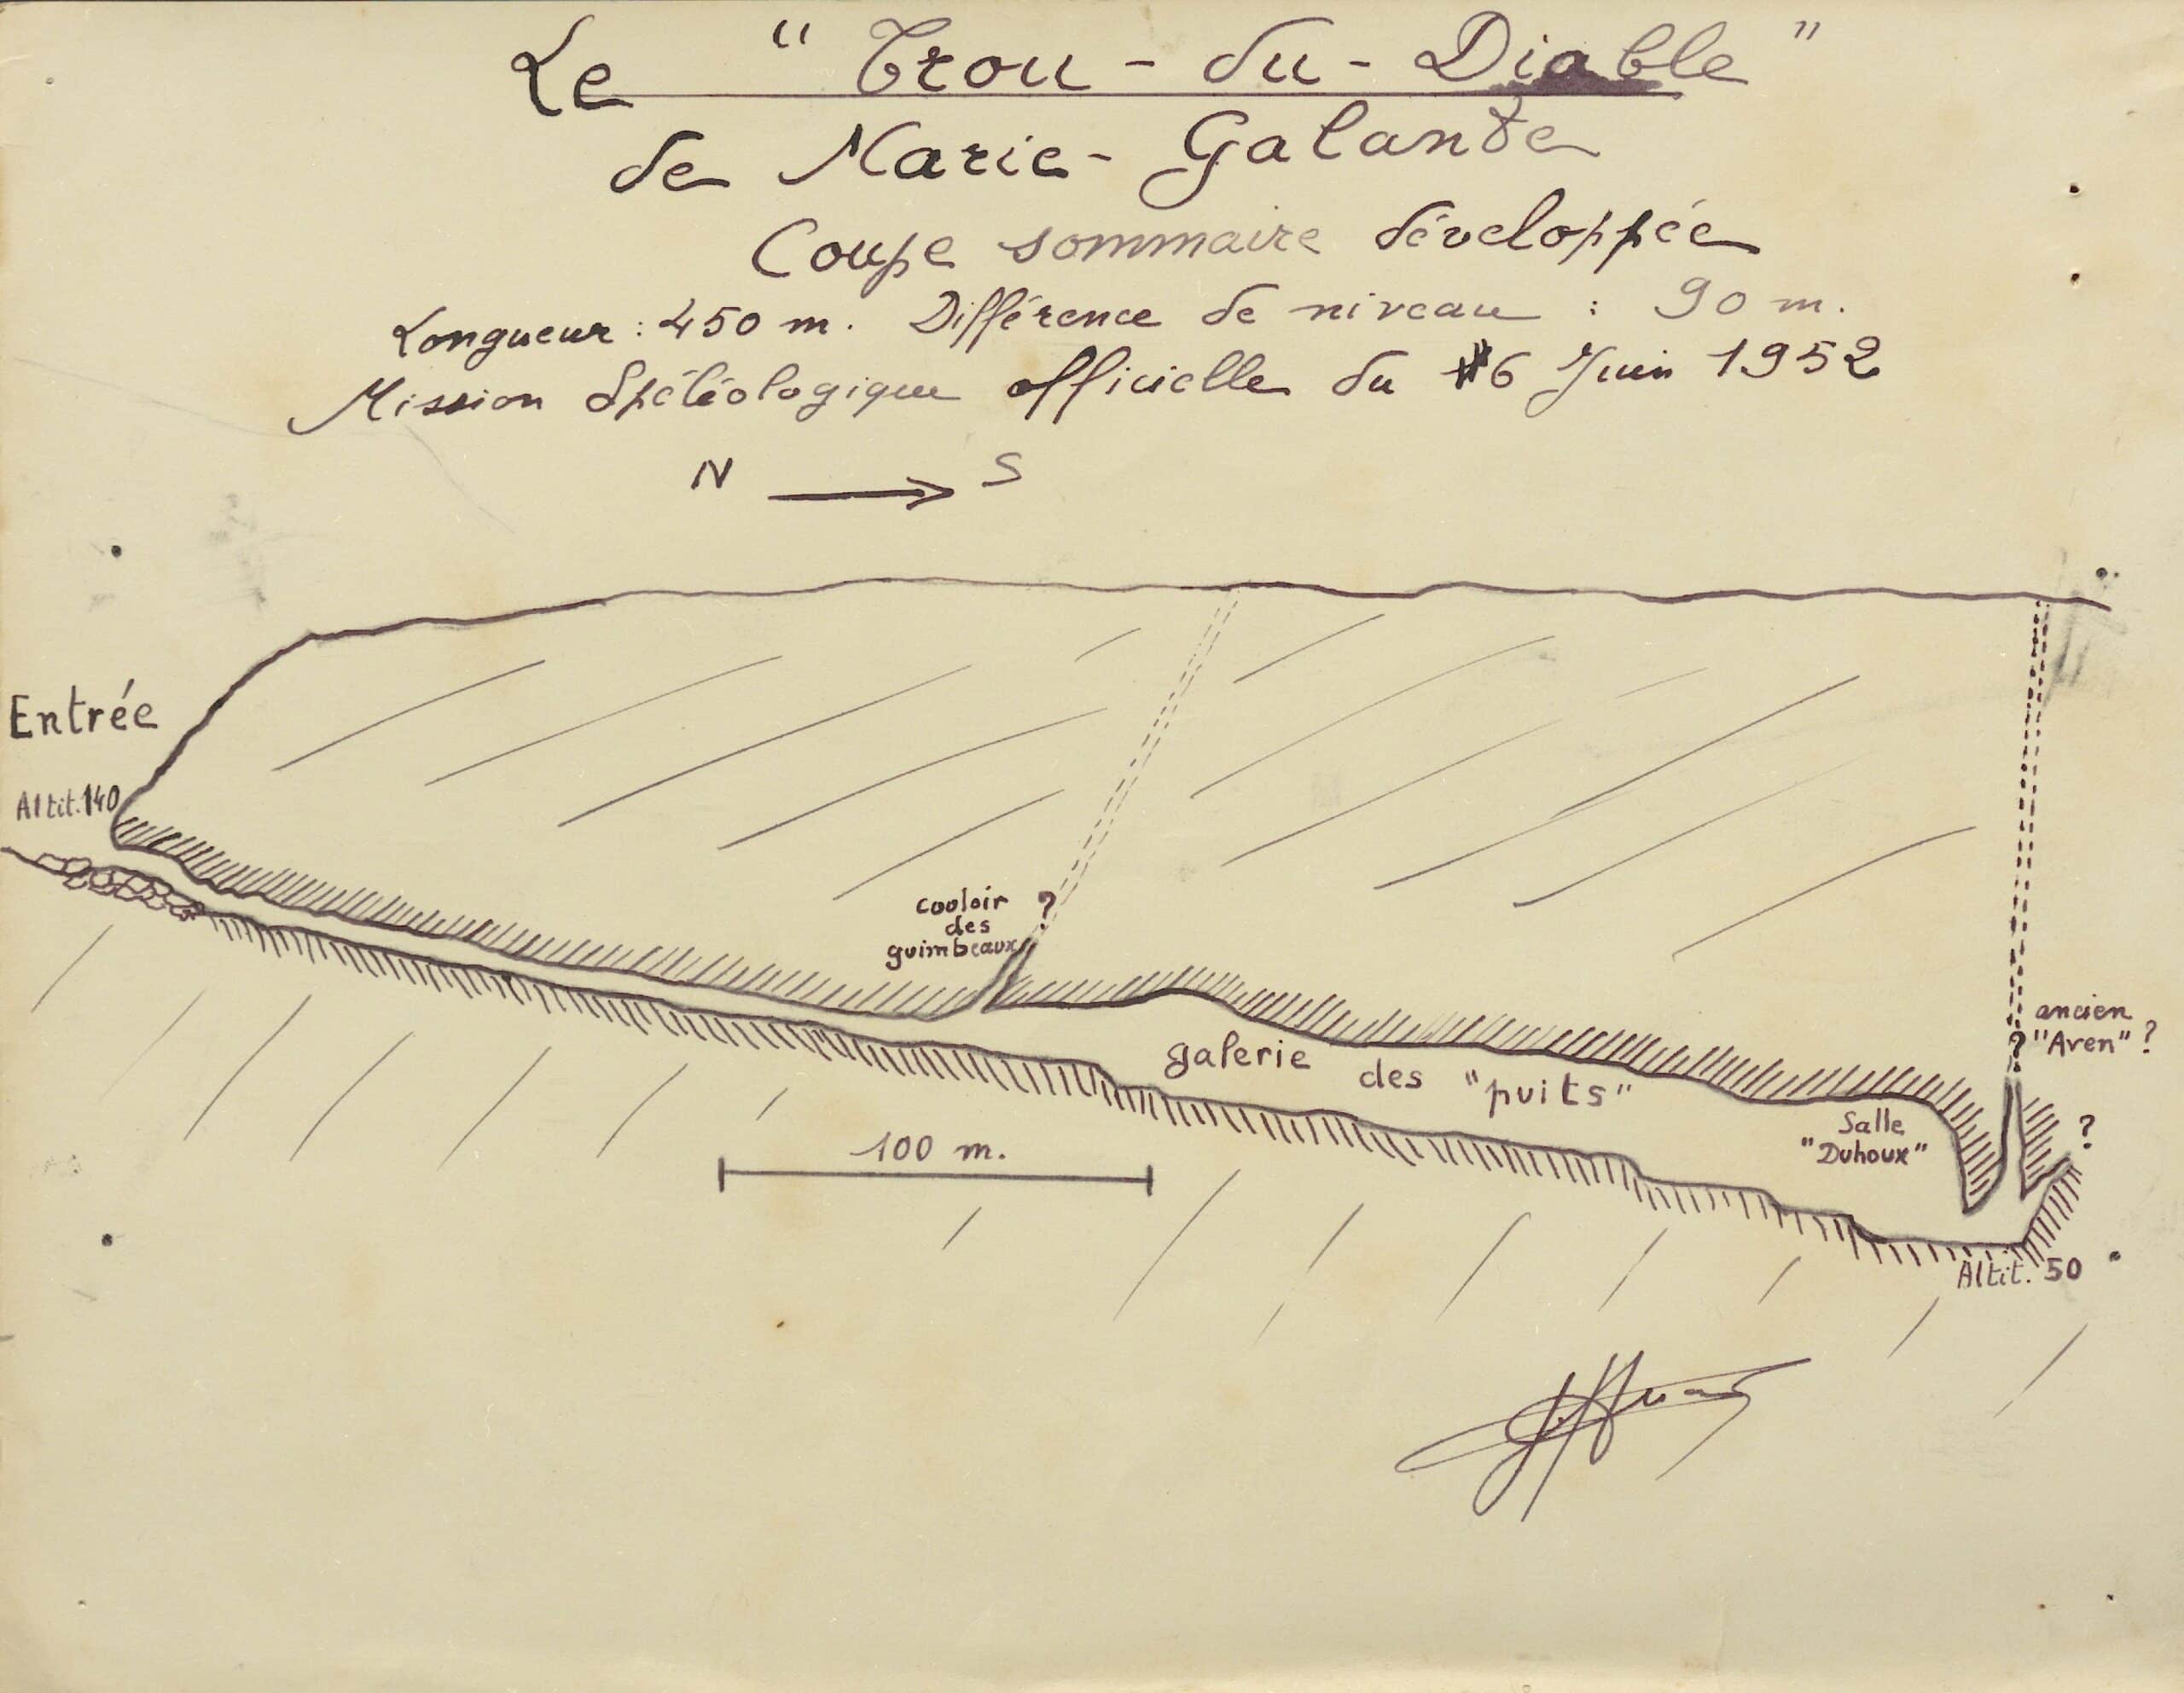 Le "Trou-du-Diable"
de Marie-Galante
Coupe sommaire développée
Longueur : 450 m. Différence de niveau : 90 m.
Mission Spéléologique officielle du 6 Juin 1952
N S
Entrée
Altit. 140
couloir ?
des
guimbeaux
galerie des "puits"
ancien
? "Aven" ?
Salle
"Duhoux"
?
100 m.
Altit. 50